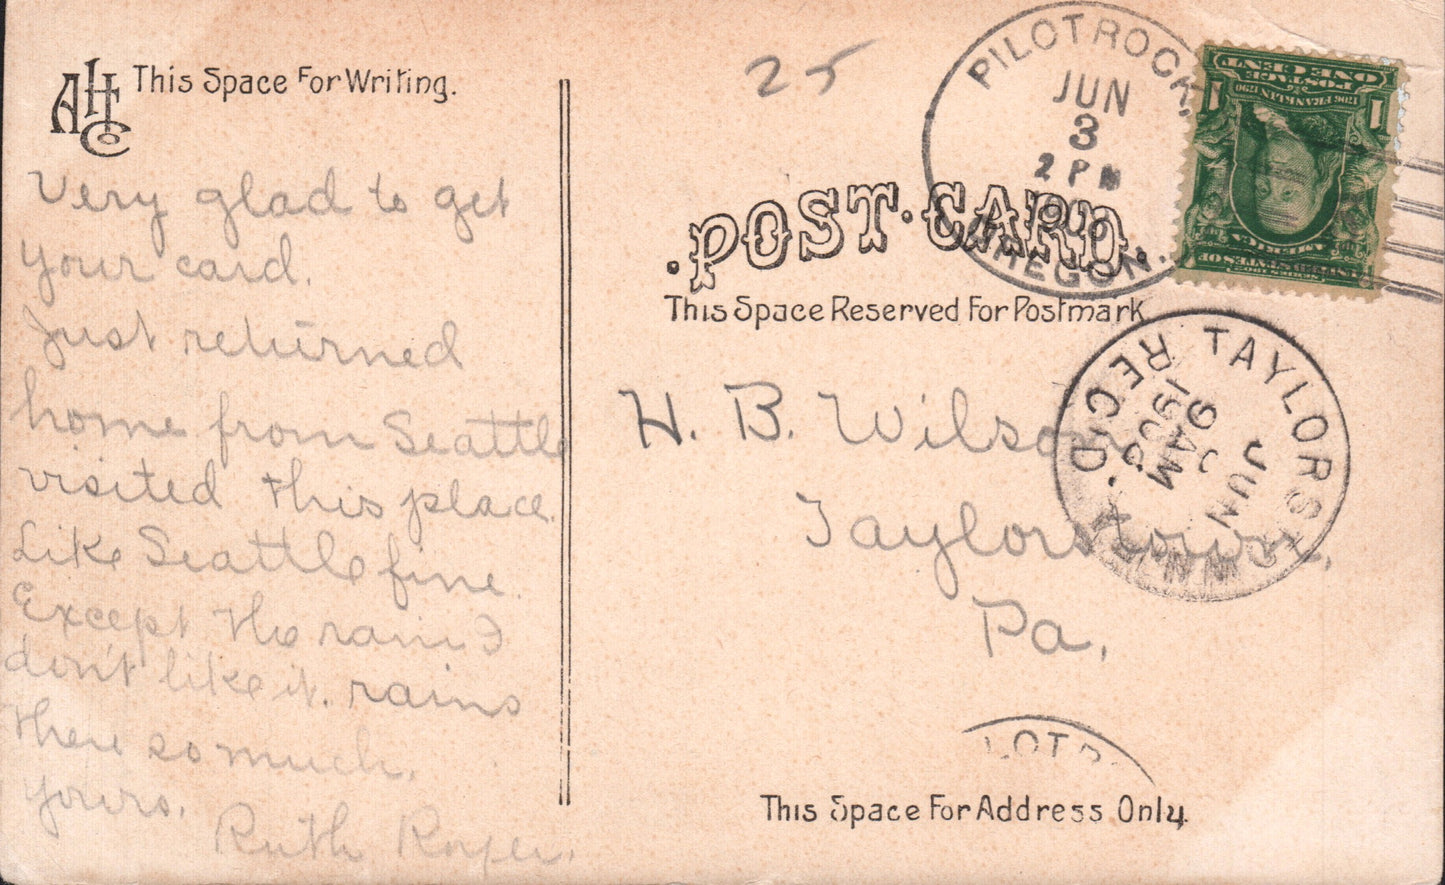 AHCo
This Space For Writing.
Very glad to get
your card.
Just returned
home from Seattle
visited this place.
Like Seattle fine.
Except the rain I
don't like it. rains
there so much.
yours.
Ruth
25
PILOT ROCK,
JUN
3
2 PM
OREGON.
1 1
POSTAGE
ONE CENT
1706 FRANKLIN 1790
UNITED STATES OF
AMERICA
SERIES 1902
POST CARD.
This Space Reserved For Postmark
TAYLORSTOWN
REC'D.
JUN
9 AM
H. B. Wilson
Taylorstown,
Pa,
LOT R
This Space For Address Only.